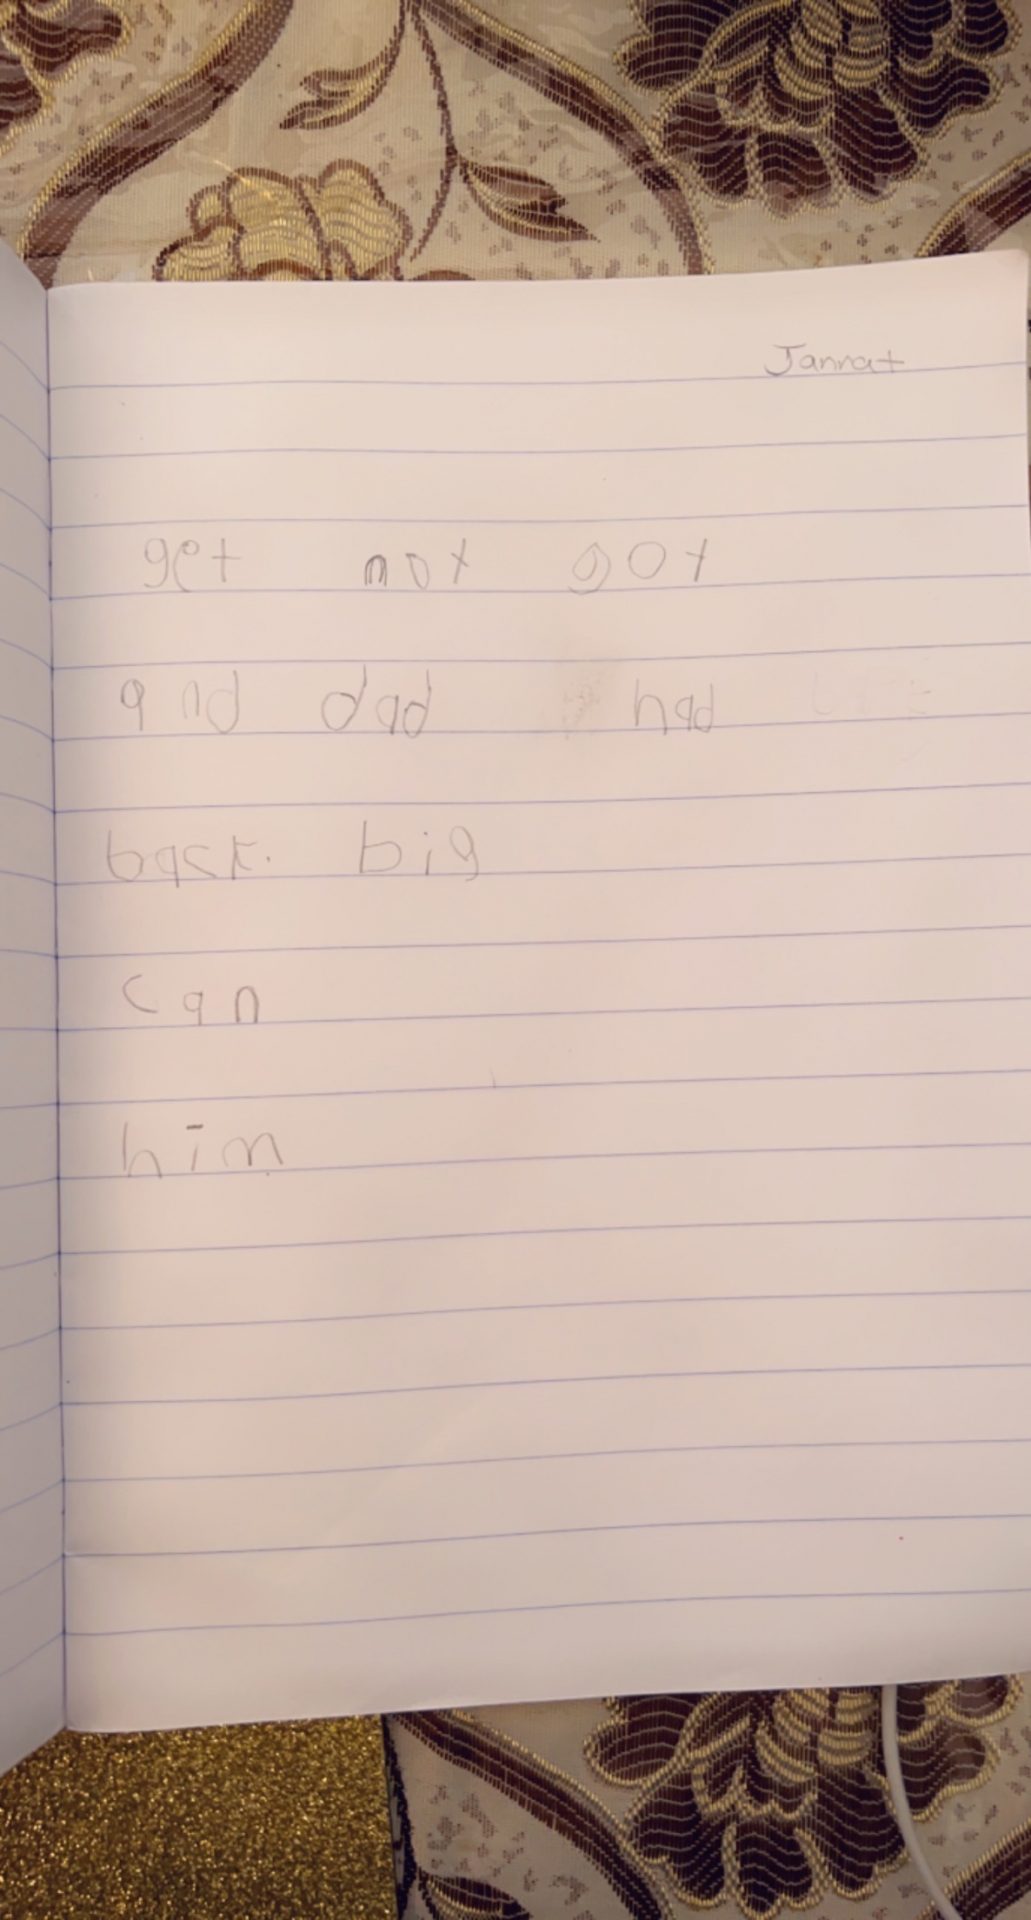 Jannat
get not got
and dad had
back. big
can
him